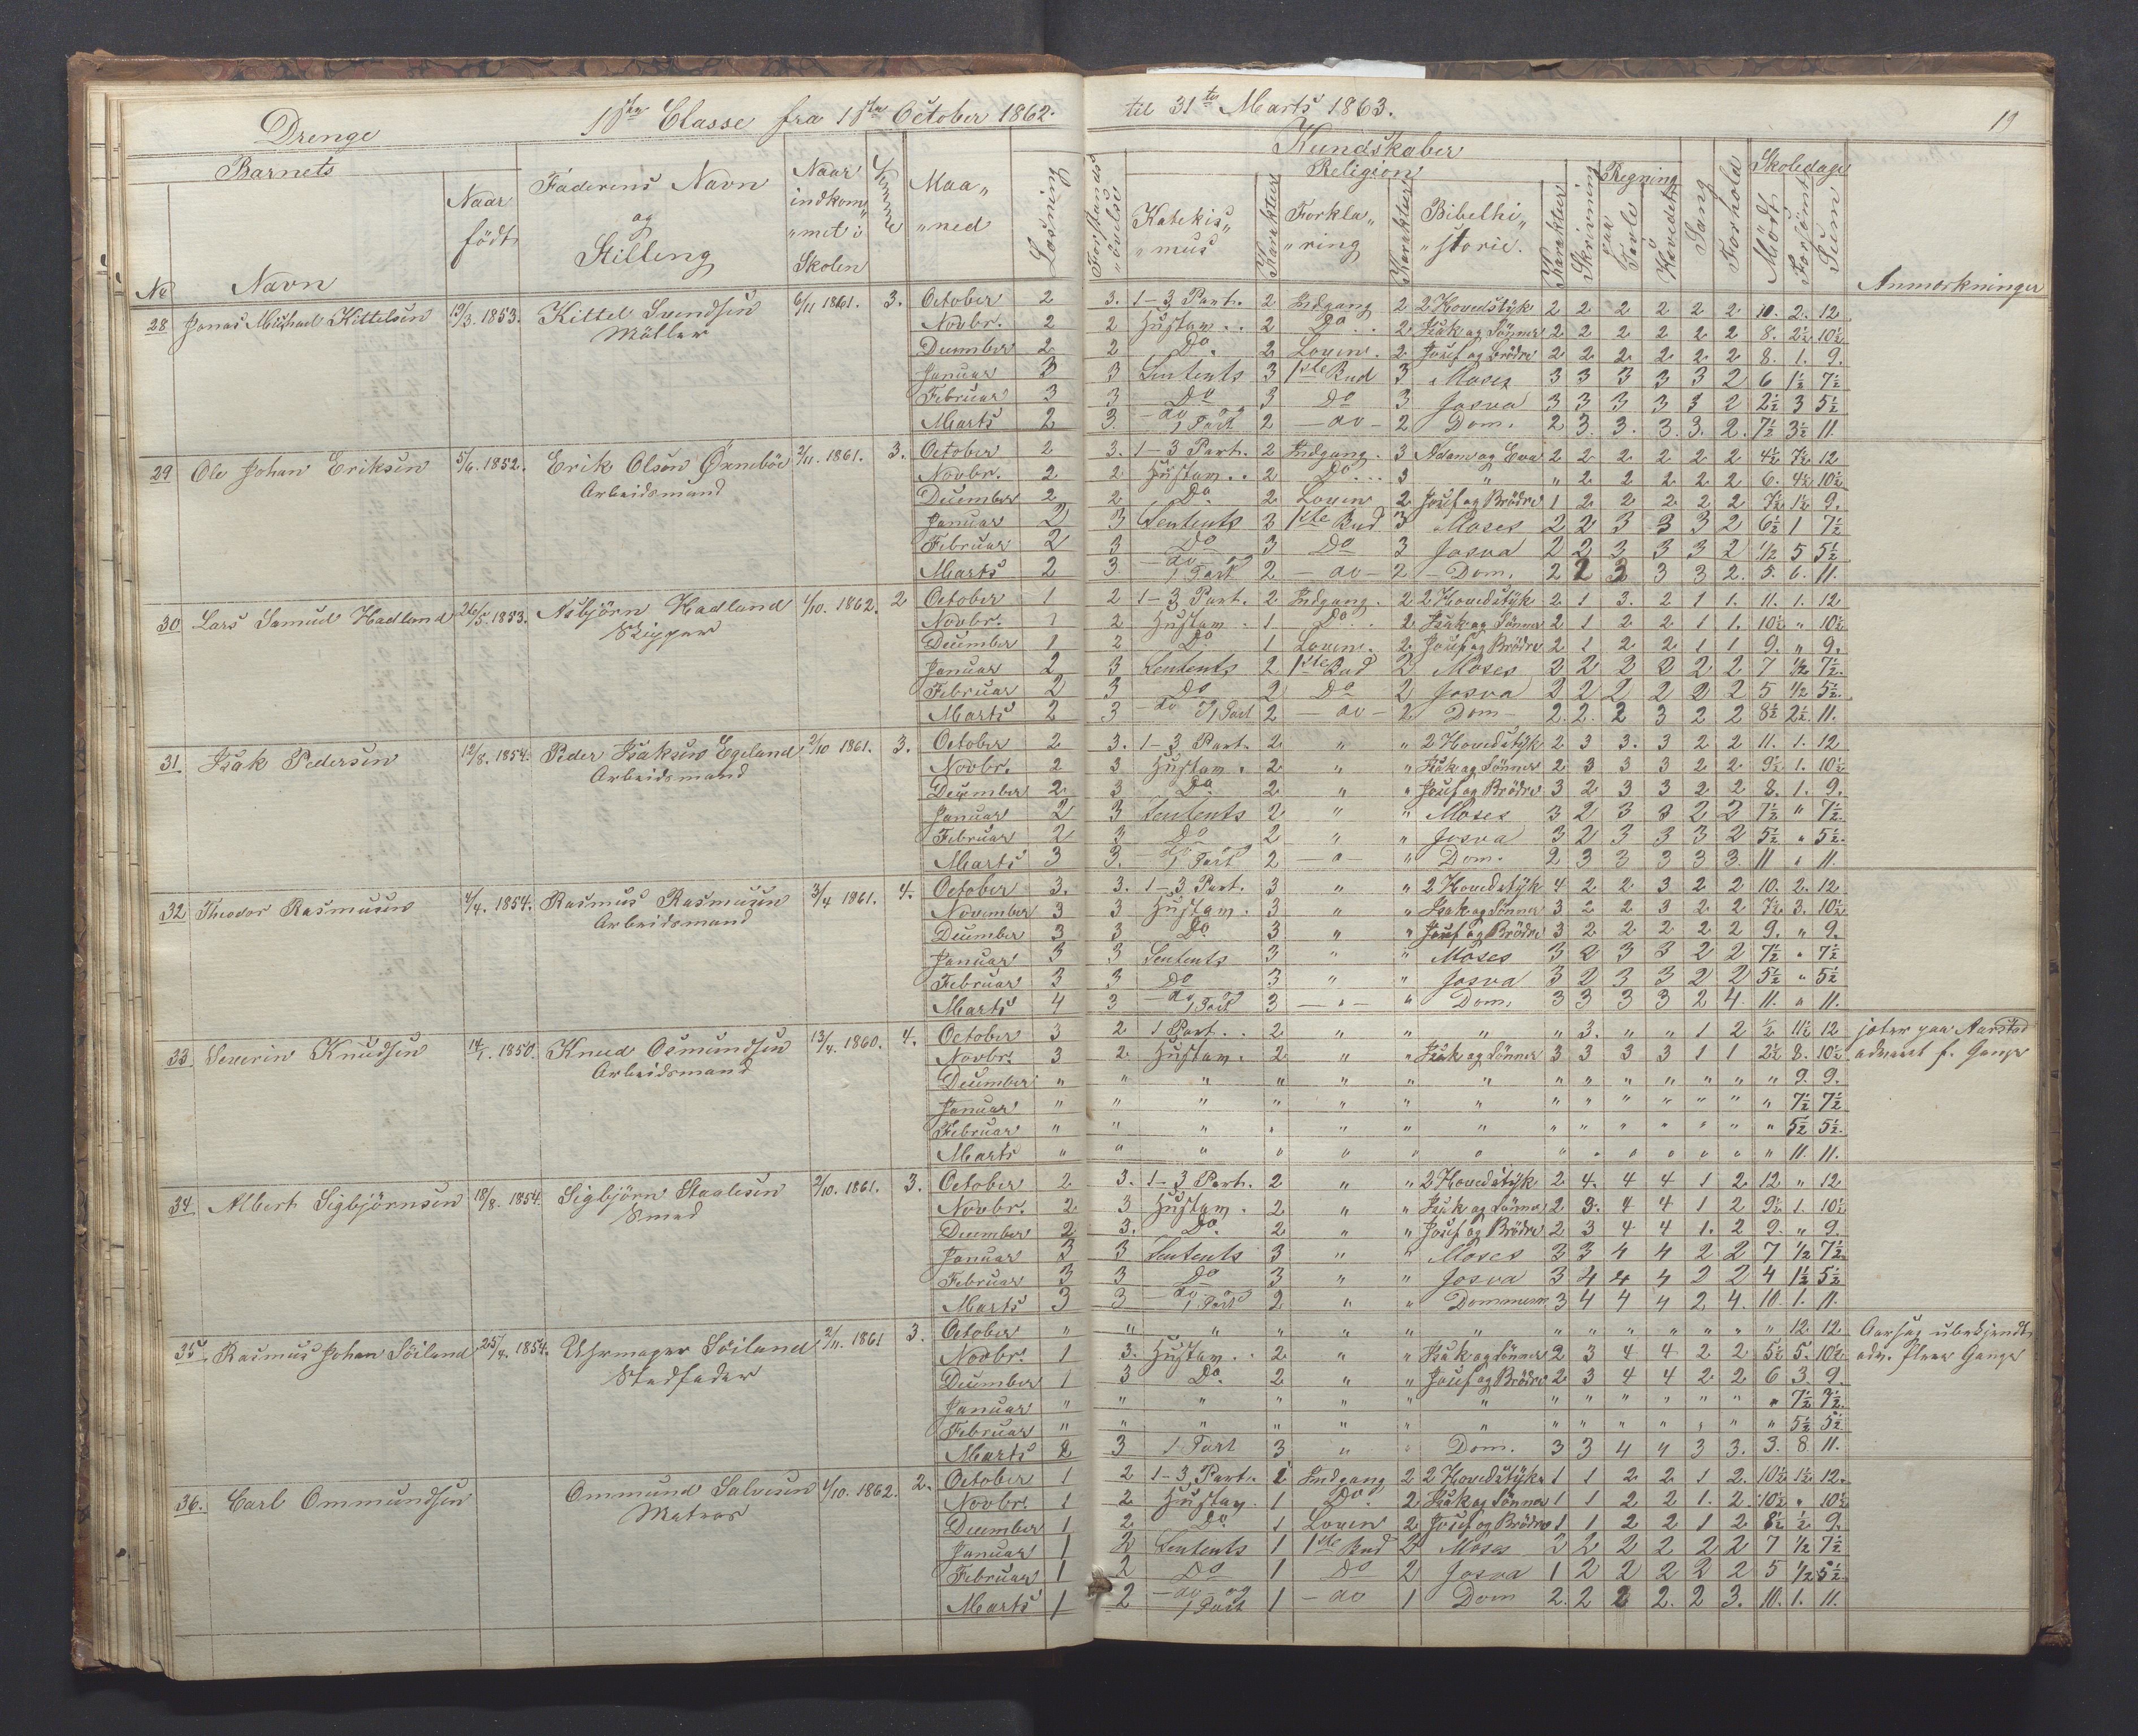 Drenge 1ste Classe fra 1ste October 1862. til 31te Marts 1863. 19
Barnets Faderens Navn og Stilling Naar indkom„ „met i Skolen Evne Maa„ „ned Læsning Forstands„ „övelse Kundskaber Skoledage
Religion Skrivning Regning Sang Forhold Mödt Forsömt Sum Anmærkninger
No Navn Naar födt Katekis„ „mus Karakteer Forkla„ „ring Karakteer Bibelhi„ „storie. Karakteer paa Tavle Hovedet
28 Jonas Michael Kittelsen 19/3. 1853. Kittel Svendsen 6/11 1861. 3. October 2 3. 1–3 Part. 2 Indgang 2 2 Hovedstÿk 2 2 2 2 2 2 10. 2. 12
Möller Novbr. 2 2 Hustam. . 2 Do . . 2 Isak og Sönner 2 2 2 2 2 2 8. 2½ 10½
December 2 2 Do. 2 Loven . 2 Josef og Brödre 2 2 2 2 2 2 8. 1. 9.
Januar 3 3 Sentents 3 1ste Bud 3 Moses 3 3 3 3 3 2 6 1½ 7½
Februar 3 3 Do 3 Do 3 Josva 3 3 3 3 3 2 2½ 3 5½
Marts 2 3. – do og 1 Part 2 – do – 2 Dom. 2 3. 3. 3. 3. 2. 7½ 3½ 11.
29 Ole Johan Eriksen 5/6. 1852. Erik Olsen Örneböe 2/11. 1861. 3. October 2 3. 1–3 Part. 2 Indgang. 3 Adam og Eva 2 2 2 2 2 2 4½ 7½ 12
Arbeidsmand Novbr. 2 2 Hustam. . 2 Do . . . 3 „ „ 2 2 2 2 2 6. 4½ 10½
December 2 2 Do. 2 Loven 2 Josef og Brödre 1 2 2 2 2 2 7½ 1½ 9.
Januar 2 3 Sentents 3 1ste Bud 3 Moses 2 2 3 3 3 2 6½ 1 7½
Februar 2 3 Do 3 Do 3 Josva 2 2 3 3 3 2 ½ 5 5½
Marts 2 3 – do og 1 Part 2 – do – 2 – Dom. 2 2 3 3 3 2. 5. 6. 11.
30 Lars Samuel Hadland 26/5. 1853. Asbjörn Hadland 1/10. 1862. 2 October 1 2 1–3 Part. 2 Indgang. 2 2 Hovedstÿk 2 1 3. 2 1 1. 11. 1. 12
Skipper Novbr. 1 2 Hustam . 1 Do. . 2 Isak og Sönner 2 1 2 2 1 1. 10½ „ 10½
December 1 2 Do 1 Loven. 2 Josef og Brödre 2 1 2 2 1 1 9. „ 9.
Januar 2 3 Sentents 2 1ste Bud 2 Moses 2 2 2 2 2 2 7 ½ 7½.
Februar 2 3 Do 2 Do 2 Josva 2 2 2 2 2 2 5 ½ 5½.
Marts 2 3 – do og 1 Part 2 – do – 2 Dom – 2. 2. 2 3 2 2 8½ 2½ 11.
31 Isak Pedersen 12/8. 1854. Peder Isaksen Egeland 2/10 1861. 3. October 2 3. 1–3 Part. 2 „ „ 2 Hovedstÿk 2 3 3. 3 2 2 11. 1. 12
Arbeidsmand Novbr. 2 3 Hustam . 2 „ „ Isak og Sönner 2 3 3 3 2 2 9½ 1. 10½
December 2 3 Do 2 „ „ Josef og Brödre 3 2 3 3 2 2 8. 1. 9.
Januar 2 3 Sentents 2 „ „ Moses 3 2 3 3 2 2 7½ „ 7½
Februar 2 3 Do 2 „ „ Josva 3 2 3 3 3 2 5½ „ 5½.
Marts 3 3. – do og 1 Part 2 – „ – „ Dom. 2 3 3 3 3 3. 11 „ 11.
32 Theodor Rasmusen 4/4. 1854. Rasmus Rasmusen 3/4 1861. 4. October 3. 3. 1–3 Part. 3 „ „ 2 Hovedstÿk 4 2 2 3 2 2 10. 2. 12
Arbeidsmand November 3 3 Hustam. 3 „ „ Isak og Sönner 3 2 2 3 2 2 7½ 3. 10½
December 3 3 Do. 3 „ „ Josef og Brödre 3 2 2 2 2 2 9. „ 9.
Januar 3 3 Sentents 3 „ „ Moses 3 2 3 3 2 2 7½ „ 7½
Februar 3 3 Do 3 „ „ Josva 3 2 3 3 2 2 5½ „ 5½
Marts 4 3 – do og 1 Part 3 – „ – „ Dom. 3 3 3 3 2 4. 11. „ 11.
33 Severin Knudsen 14/1. 1850. Knud Osmundsen 13/4. 1860. 4. October 3 2 1 Part. . 2 „ „ „ „ 3. „ „ 1 2 ½ 11½ 12 jæter paa Aarstad
Arbeidsmand Novbr. 3 2. Hustam. 2 „ „ Isak og Sönner 3 3 3 3 1 1 2½ 8. 10½ advaret f. Gange
December „ „ „ „ „ „ „ „ „ „ „ „ „ „ 9. 9.
Januar „ „ „ „ „ „ „ „ „ „ „ „ „ „ 7½ 7½
Februar „ „ „ „ „ „ „ „ „ „ „ „ „ „ 5½ 5½.
Marts „ „ „ „ „ „ „ „ „ „ „ „ „ „ 11. 11.
34 Albert Sigbjörnsen 18/8. 1854. Sigbjörn Staalesen 2/10. 1861. 3. October 2 3. 1–3 Part. 2 „ „ 2 Hovedstÿk 2 4. 4 4 1 2 12 „ 12
Smed Novbr. 2 3 Hustam . 2 „ „ Isak og Sönner 2 3. 4 4 1 2 9½ 1. 10½
December 2 3. Do. 2 „ „ Josef og Brödre 2 3 4 4 1. 2 9. „ 9.
Januar 3 3 Sentents 3 „ „ Moses 3 3 4 4 2 2 7 ½ 7½
Februar 3 3 Do 3 „ „ Josva 3 4 4 4 2 2 4 1½ 5½
Marts 3 3 – do og 1 Part 2 „ „ Dommerne 3 4 4 4 2 4. 10. 1. 11.
35 Rasmus Johan Söiland 25/4. 1854. Uhrmager Söiland 2/11. 1861 3. October „ „ „ „ „ „ „ „ „ „ „ „ „ „ 12. 12. Aarsag ubekjendt
Stedfader Novbr. 1 3. Hustam. . 2 „ „ Isak og Sönner 2 3 4 4 2 2 5½ 5. 10½ adv. flere Gange
December 1 3 Do. 2 „ „ Josef og Brödre 2 3 4 4 2 2 6 3. 9.
Januar „ „ „ „ „ „ „ „ „ „ „ „ „ „ 7½ 7½.
Februar „ „ „ „ „ „ „ „ „ „ „ „ „ „ 5½ 5½
Marts 2 3 1 Part 3 „ „ Dom. 3 3 4 4 3 3. 3. 8 11.
36. Carl Ommundsen Ommund Salvesen 1/10. 1862. 2. October 1 2 1–3 Part. 1 Indgang 2 2 Hovedstÿk 1 1 2 2 1 2. 10½ 1½ 12.
Matros Novbr. 1 2 Hustam. 1 Do. 2 Isak og Sönner 1 1 2 2 1. 2. 10½ „ 10½
December 1 2 Do. 1 Loven 2 Josef og Brödre 1 1 2 2 1 2 8½ ½ 9.
Januar 1 2 Sentents 1 1ste Bud 2 Moses 2 2 2 2 2 2 7 ½ 7½
Februar 1 2 Do 1 Do 2 Josva 1 2 2 2 2 2 5 ½ 5½
Marts 1 2 – do og 1 Part 1 – do 1 Dom 2. 2 2 2. 2 3. 10. 1. 11.